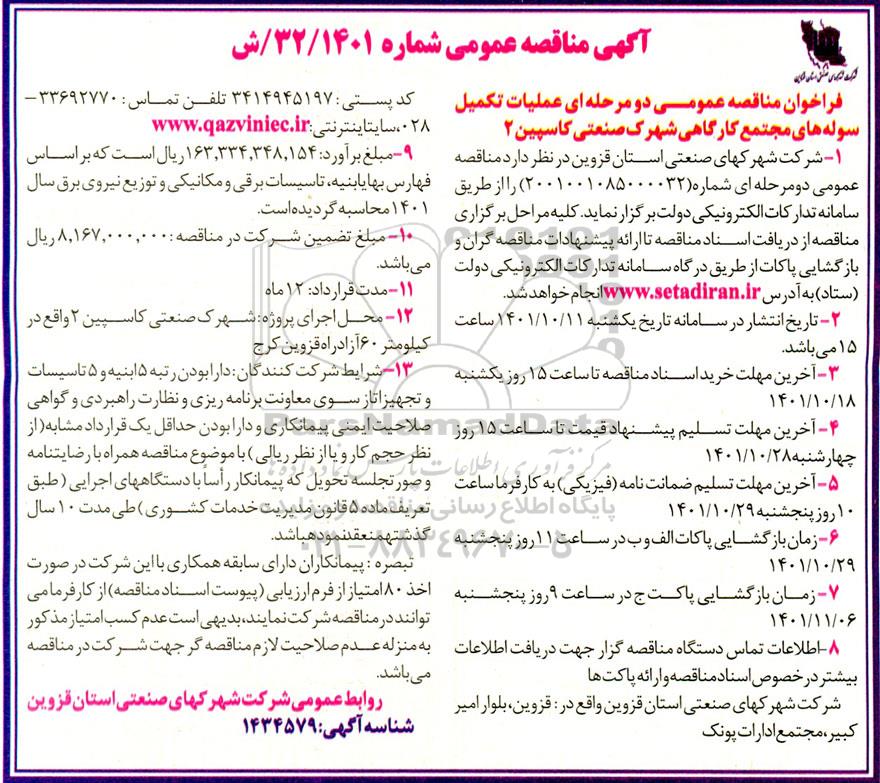 آگهی مناقصه عمومی شماره ۳۲/۱۴۰۱/ش
شرکت شهرکهای صنعتی استان قزوین
فراخوان مناقصه عمومی دو مرحله ای عملیات تکمیل
سوله های مجتمع کارگاهی شهرک صنعتی کاسپین ۲
۱- شرکت شهرکهای صنعتی استان قزوین در نظر دارد مناقصه
عمومی دو مرحله ای شماره (۲۰۰۱۰۰۱۰۸۵۰۰۰۰۳۲) را از طریق
سامانه تدارکات الکترونیکی دولت برگزار نماید. کلیه مراحل برگزاری
مناقصه از دریافت اسناد مناقصه تا ارائه پیشنهادات مناقصه گران و
بازگشایی پاکات از طریق درگاه سامانه تدارکات الکترونیکی دولت
(ستاد) به آدرس www.setadiran.ir انجام خواهد شد.
۲- تاریخ انتشار در سامانه تاریخ یکشنبه ۱۴۰۱/۱۰/۱۱ ساعت
۱۵ می باشد.
۳- آخرین مهلت خرید اسناد مناقصه تا ساعت ۱۵ روز یکشنبه
۱۴۰۱/۱۰/۱۸
۴- آخرین مهلت تسلیم پیشنهاد قیمت تا ساعت ۱۵ روز
چهارشنبه ۱۴۰۱/۱۰/۲۸
۵- آخرین مهلت تسلیم ضمانت نامه (فیزیکی) به کارفرما ساعت
۱۰ روز پنجشنبه ۱۴۰۱/۱۰/۲۹
۶- زمان بازگشایی پاکات الف و ب در ساعت ۱۱ روز پنجشنبه
۱۴۰۱/۱۰/۲۹
۷- زمان بازگشایی پاکت ج در ساعت ۹ روز پنجشنبه
۱۴۰۱/۱۱/۰۶
۸- اطلاعات تماس دستگاه مناقصه گزار جهت دریافت اطلاعات
بیشتر در خصوص اسناد مناقصه و ارائه پاکت ها
شرکت شهرکهای صنعتی استان قزوین واقع در: قزوین، بلوار امیر
کبیر، مجتمع ادارات پونک
کد پستی: ۳۴۱۴۹۴۵۱۹۷ تلفن تماس: ۳۳۶۹۲۷۷۰-
۰۲۸، سایت اینترنتی: www.qazviniec.ir
۹- مبلغ برآورد: ۱۶۳,۳۳۴,۳۴۸,۱۵۴ ریال است که بر اساس
فهارس بهای ابنیه، تاسیسات برقی و مکانیکی و توزیع نیروی برق سال
۱۴۰۱ محاسبه گردیده است.
۱۰- مبلغ تضمین شرکت در مناقصه: ۸,۱۶۷,۰۰۰,۰۰۰ ریال
می باشد.
۱۱- مدت قرارداد: ۱۲ ماه
۱۲- محل اجرای پروژه: شهرک صنعتی کاسپین ۲ واقع در
کیلومتر ۶۰ آزادراه قزوین کرج
۱۳- شرایط شرکت کنندگان: دارا بودن رتبه ۵ ابنیه و ۵ تاسیسات
و تجهیزات از سوی معاونت برنامه ریزی و نظارت راهبردی و گواهی
صلاحیت ایمنی پیمانکاری و دارا بودن حداقل یک قرارداد مشابه (از
نظر حجم کار و یا از نظر ریالی) با موضوع مناقصه همراه با رضایتنامه
و صورتجلسه تحویل که پیمانکار رأساً با دستگاههای اجرایی (طبق
تعریف ماده ۵ قانون مدیریت خدمات کشوری) طی مدت ۱۰ سال
گذشته منعقد نموده باشد.
تبصره: پیمانکاران دارای سابقه همکاری با این شرکت در صورت
اخذ ۸۰ امتیاز از فرم ارزیابی (پیوست اسناد مناقصه) از کارفرما می
توانند در مناقصه شرکت نمایند، بدیهی است عدم کسب امتیاز مذکور
به منزله عدم صلاحیت لازم مناقصه گر جهت شرکت در مناقصه
می باشد.
روابط عمومی شرکت شهرکهای صنعتی استان قزوین
شناسه آگهی: ۱۴۳۴۵۷۹
ParsNamadData
مرکز فرآوری اطلاعات پارس نماد داده ها
پایگاه اطلاع رسانی مناقصه و مزایده
۰۲۱-۸۸۳۴۹۶۷۰-۵